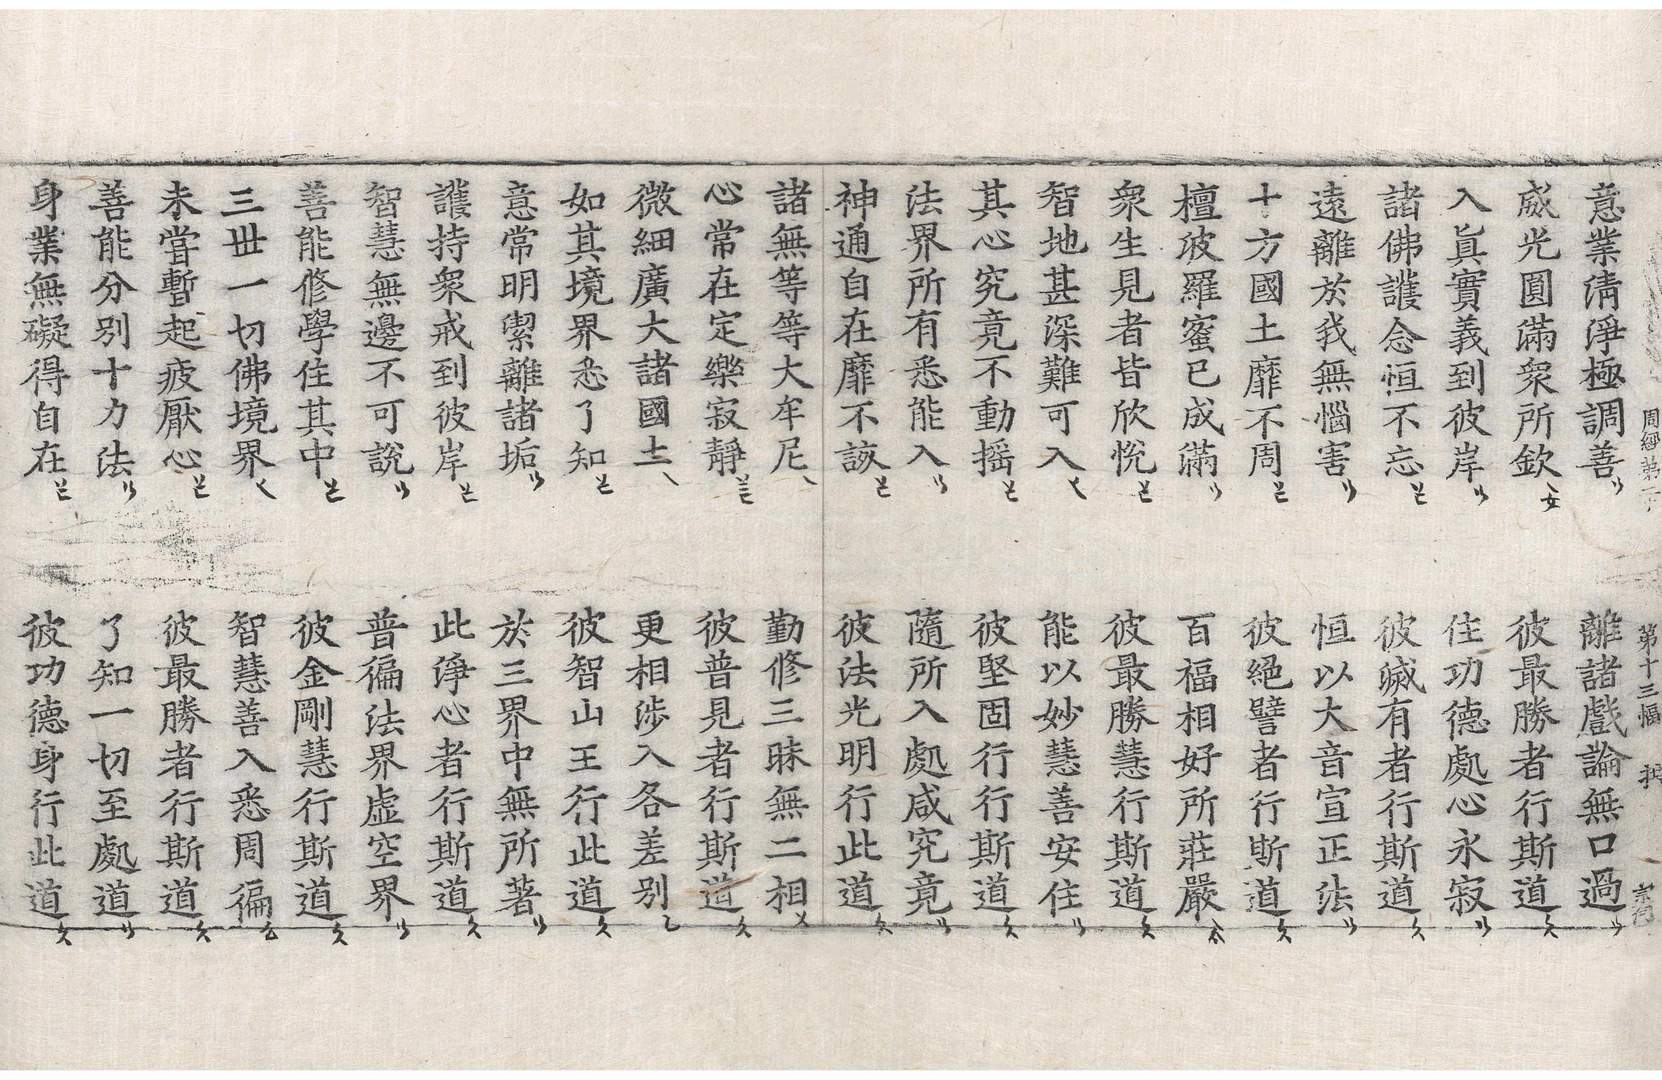 周經第二十 第十三幅
意業清淨極調善 離諸戲論無口過
威光圓滿衆所欽 彼最勝者行斯道
入眞實義到彼岸 住功德處心永寂
諸佛護念恒不忘 彼滅有者行斯道
遠離於我無惱害 恒以大音宣正法
十方國土靡不周 彼絕譬者行斯道
檀波羅蜜已成滿 百福相好所莊嚴
衆生見者皆欣悅 彼最勝慧行斯道
智地甚深難可入 能以妙慧善安住
其心究竟不動搖 彼堅固行行斯道
法界所有悉能入 隨所入處咸究竟
神通自在靡不該 彼法光明行此道
諸無等等大牟尼 勤修三昧無二相
心常在定樂寂靜 彼普見者行斯道
微細廣大諸國土 更相涉入各差別
如其境界悉了知 彼智山王行此道
意常明潔離諸垢 於三界中無所著
護持衆戒到彼岸 此淨心者行斯道
智慧無邊不可說 普徧法界虛空界
善能修學住其中 彼金剛慧行斯道
三世一切佛境界 智慧善入悉周徧
未嘗暫起疲厭心 彼最勝者行斯道
善能分別十力法 了知一切至處道
身業無礙得自在 彼功德身行此道